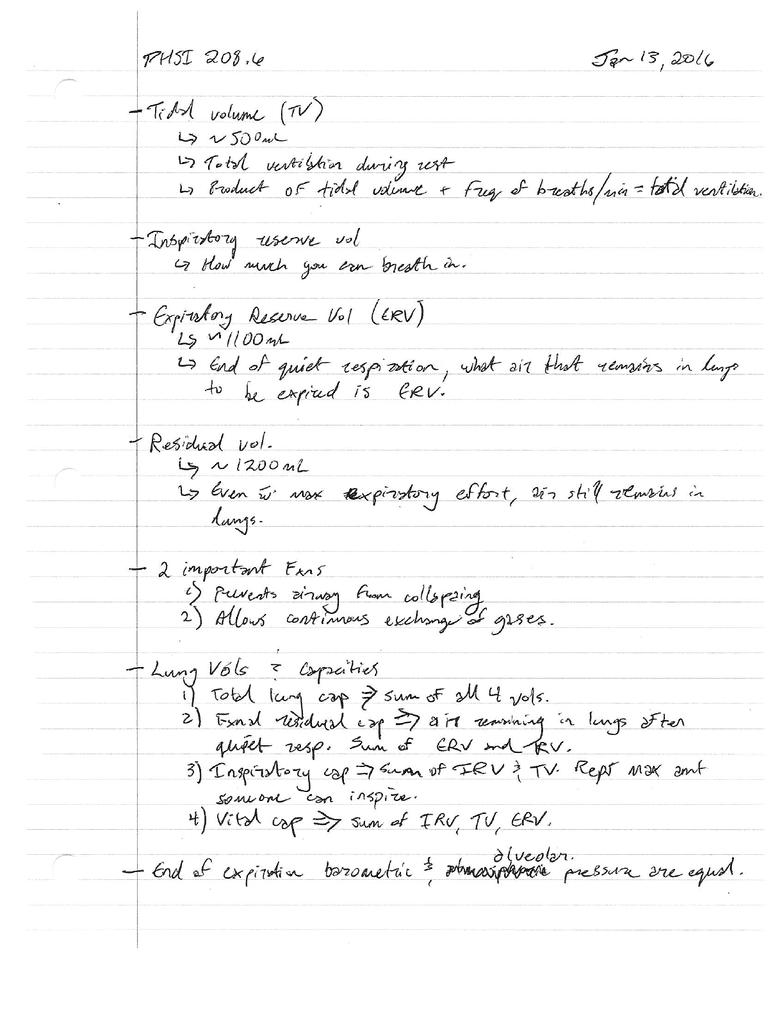 PHSI 208.6 Jan 13, 2016
- Tidal volume (TV)
↳ ~500mL
↳ Total ventilation during rest
↳ Product of tidal volume + Freq of breaths/min = total ventilation.
- Inspiratory reserve vol
↳ How much you can breath in.
- Expiratory Reserve Vol (ERV)
↳ ~1100mL
↳ End of quiet respiration, what air that remains in lungs
to be expired is ERV.
- Residual vol.
↳ ~1200mL
↳ Even w max expiratory effort, air still remains in
lungs.
- 2 important Fxns
1) Prevents airway from collapsing
2) Allows continuous exchange of gases.
- Lung Vols & Capacities
1) Total lung cap => sum of all 4 vols.
2) Fxnal residual cap => air remaining in lungs after
quiet resp. Sum of ERV and RV.
3) Inspiratory cap => sum of IRV & TV. Repr max amt
someone can inspire.
4) Vital cap => sum of IRV, TV, ERV.
- End of expiration barometric & alveolar pressure are equal.